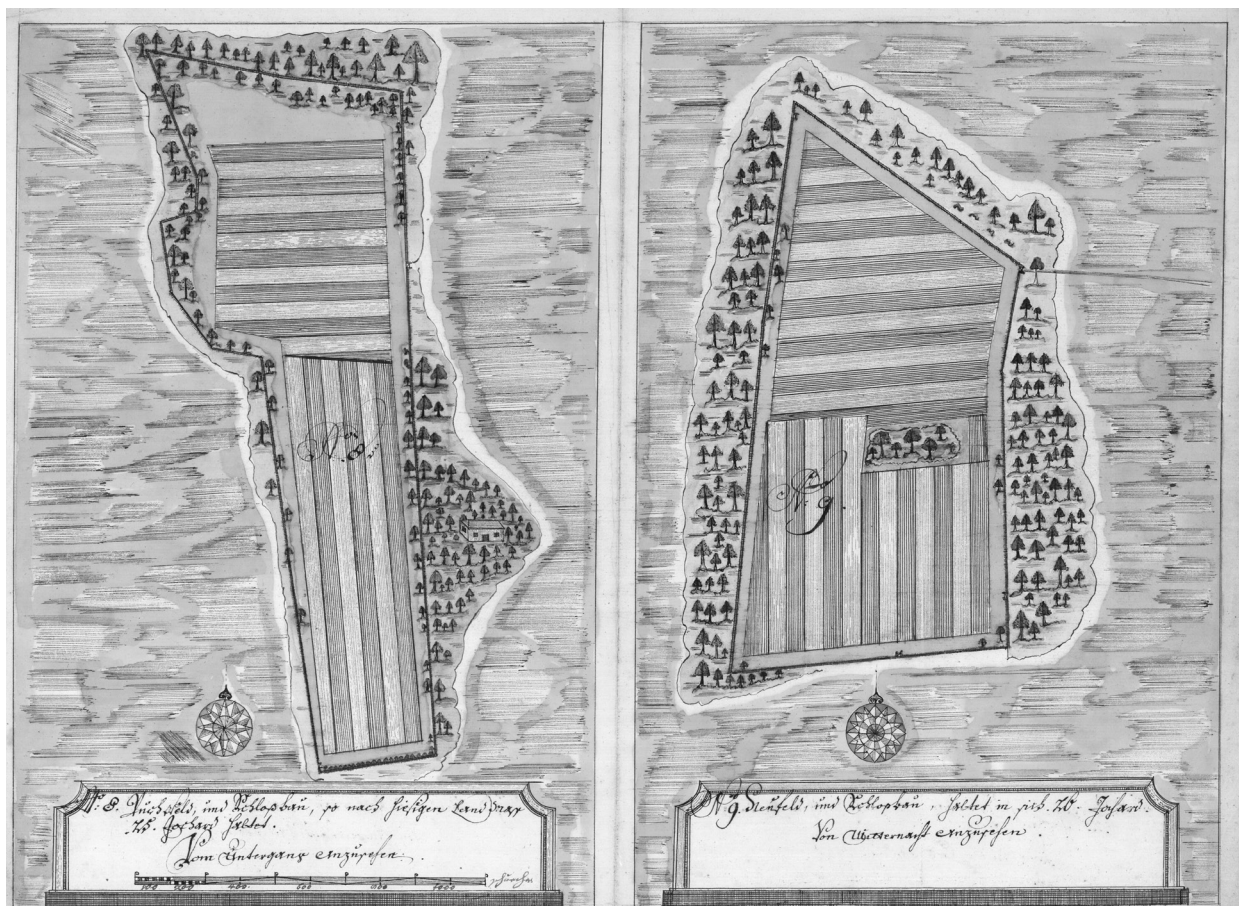 N: 8.
N: 9.
N: 8. Buchsfeld, und Schlossbau, so nach hiesigen Land
25. Jochard haltet.
Vom Untergang anzusehen.
100 200 400. 600 1000 Schuech
N: 9. Neufeld, und Schlossbau, haltet in sich. 26. Jochard.
Von Mitternacht anzusehen.